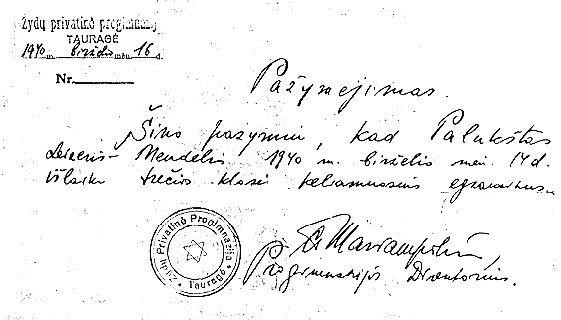 Žydų privatinė progimnazija
TAURAGĖ
1940 m. birželio mėn. 16 d.
Nr.
Pažymėjimas.
Šiuo pažymiu, kad Palukštas
Leizeris-Mendelis 1940 m. birželio mėn. 14 d.
išlaikė trečios klasės keliamuosius egzaminus.
Progimnazijos Direktorius.
Žydų Privatinė Progimnazija
Tauragė